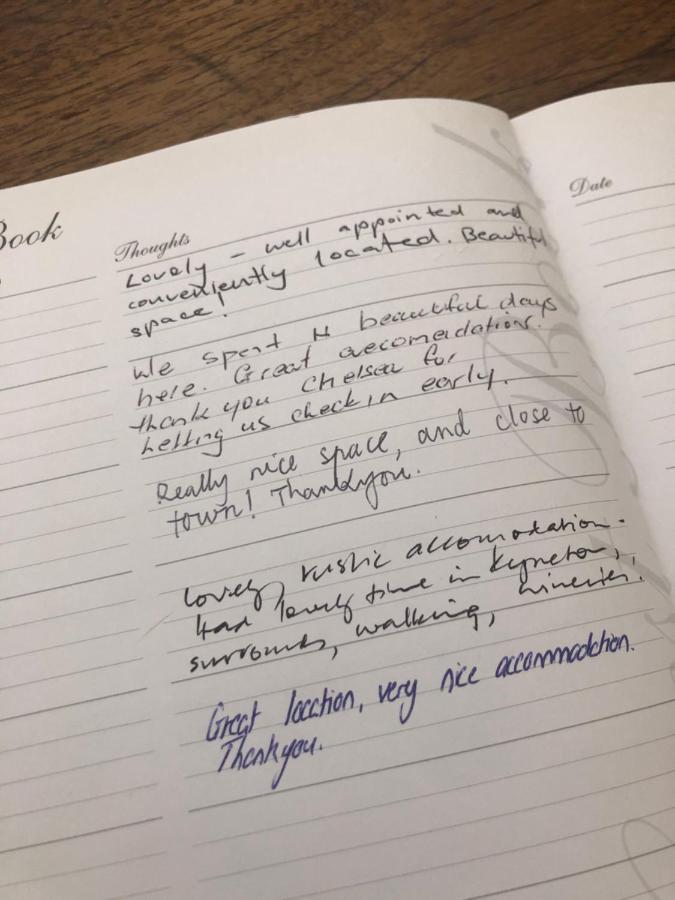 Book
Thoughts
Date
Lovely - well appointed and
conveniently located. Beautiful
space!
We spent 4 beautiful days
here. Great accomodations.
thank you Chelsea for
letting us check in early.
Really nice space, and close to
town! Thankyou.
Lovely, rustic accomodation.
Had lovely time in Kyneton,
surrounds, walking, wineries.
Great location, very nice accommodation.
Thankyou.